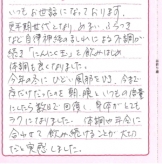 いつもお世話になっております。
更年期世代となり めまい ふらつき
など自律神経のみだれによる不調が
続き「にんにく玉」を飲みはじめ
体調も良くなりました。
今年の冬に ひどい風邪をひき、今まで
度だけだったのを 朝、晩 いつもの倍量
にしたら数日で回復し 身体がとても
ラクになりました。体調や年令に
合わせて飲み続けることが大切
だなと実感しました。